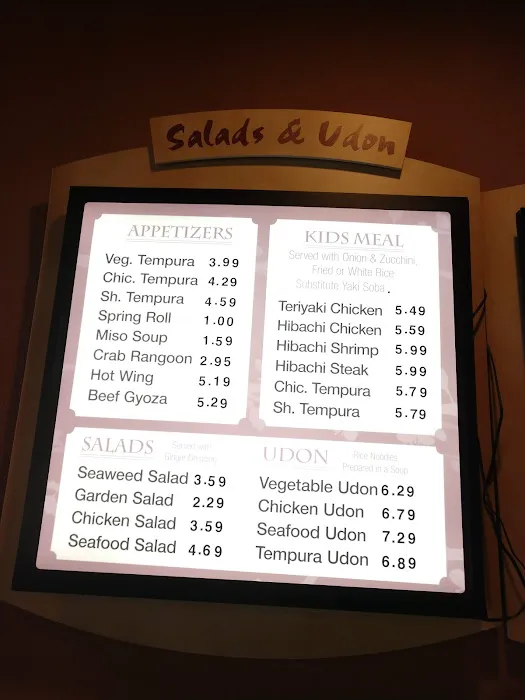 Salads & Udon
APPETIZERS
Veg. Tempura 3.99
Chic. Tempura 4.29
Sh. Tempura 4.59
Spring Roll 1.00
Miso Soup 1.59
Crab Rangoon 2.95
Hot Wing 5.19
Beef Gyoza 5.29
KIDS MEAL
Served with Onion & Zucchini,
Fried or White Rice
Substitute Yaki Soba.
Teriyaki Chicken 5.49
Hibachi Chicken 5.59
Hibachi Shrimp 5.99
Hibachi Steak 5.99
Chic. Tempura 5.79
Sh. Tempura 5.79
SALADS Served with
Ginger Dressing
Seaweed Salad 3.59
Garden Salad 2.29
Chicken Salad 3.59
Seafood Salad 4.69
UDON Rice Nubdles
Prepared in a Soup
Vegetable Udon 6.29
Chicken Udon 6.79
Seafood Udon 7.29
Tempura Udon 6.89